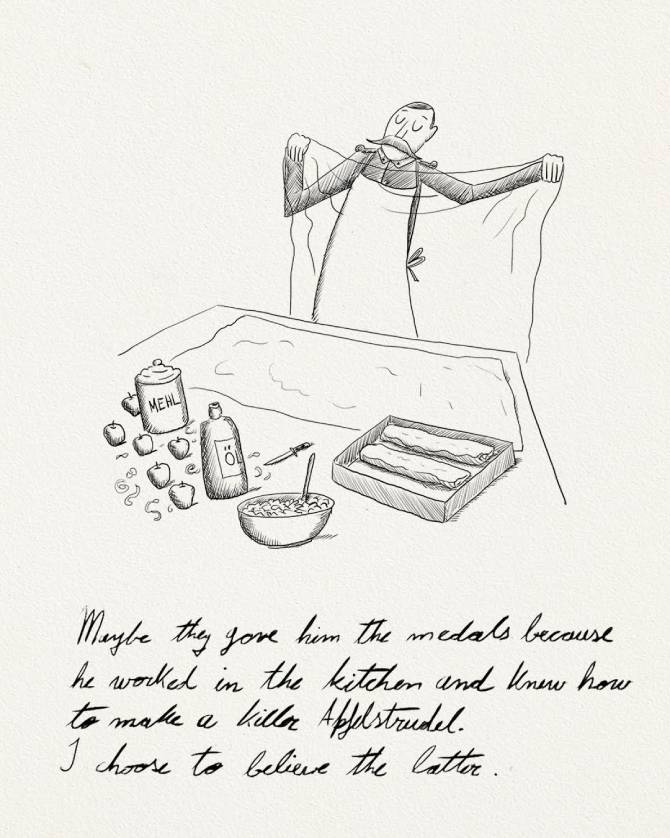 MEHL
ÖL
Maybe they gave him the medals because
he worked in the kitchen and knew how
to make a killer Apfelstrudel.
I choose to believe the latter.